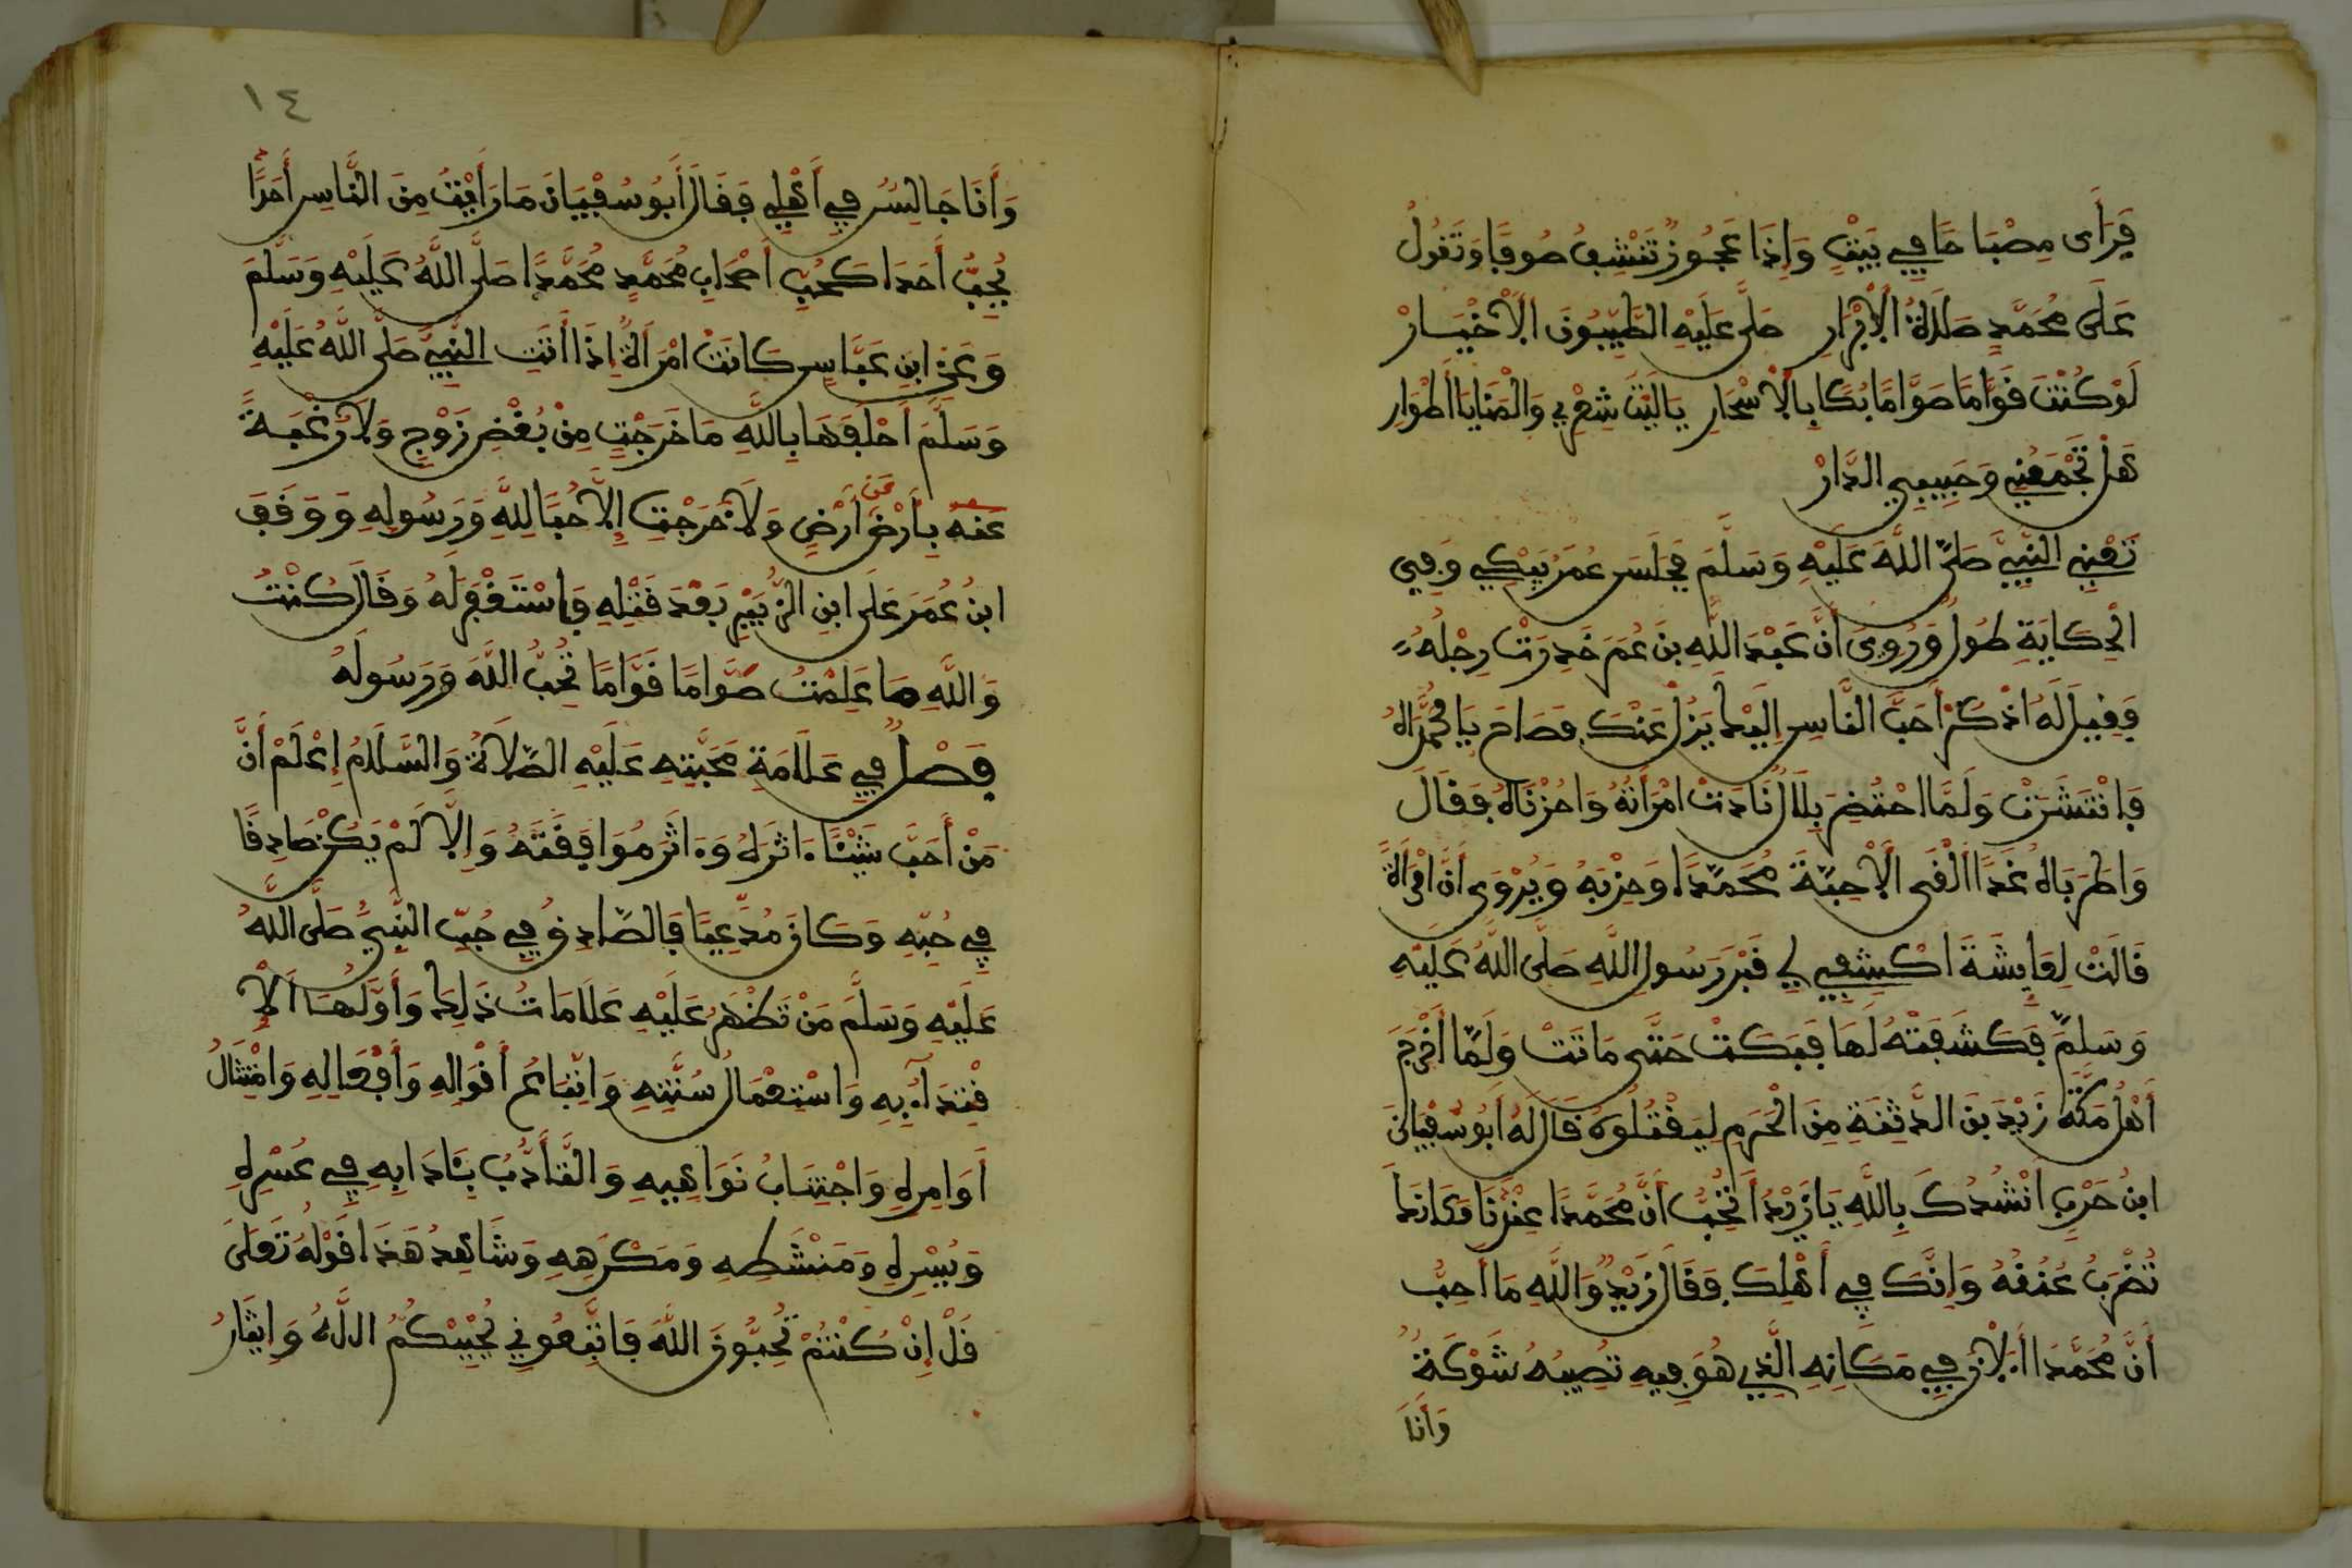 فَرَأَى مِصْبَاحًا فِي بَيْتٍ وَإِذَا عَجُوزٌ تَنْشِفُ صُوفًا وَتَقُولُ
عَلَى مُحَمَّدٍ صَلَاةُ الْأَبْرَارِ صَلَّى عَلَيْهِ الطَّيِّبُونَ الْأَخْيَارْ
لَوْ كُنْتَ قَوَّامًا صَوَّامًا بُكًا بِالْأَسْحَارِ يَا لَيْتَ شِعْرِي وَالْمَنَايَا أَطْوَارِ
هَلْ تَجْمَعُنِي وَحَبِيبِي الدَّارْ
تَعْنِي النَّبِيَّ صَلَّى اللَّهُ عَلَيْهِ وَسَلَّمَ فَجَلَسَ عُمَرُ يَبْكِي وَفِي
الْحِكَايَةِ طُولٌ وَرُوِيَ أَنَّ عَبْدَ اللَّهِ بْنَ عُمَرَ خَدِرَتْ رِجْلُهُ
فَقِيلَ لَهُ اذْكُرْ أَحَبَّ النَّاسِ إِلَيْكَ يَزُلْ عَنْكَ فَصَاحَ يَا مُحَمَّدَاهُ
فَانْتَشَرَتْ وَلَمَّا احْتُضِرَ بِلَالٌ نَادَتْ امْرَأَتُهُ وَاحُزْنَاهُ فَقَالَ
وَاطَرَبَاهُ غَدًا أَلْقَى الْأَحِبَّةَ مُحَمَّدًا وَحِزْبَهُ وَيُرْوَى أَنَّ امْرَأَةً
قَالَتْ لِعَايِشَةَ اكْشِفِي لِي قَبْرَ رَسُولِ اللَّهِ صَلَّى اللَّهُ عَلَيْهِ
وَسَلَّمَ فَكَشَفَتْهُ لَهَا فَبَكَتْ حَتَّى مَاتَتْ وَلَمَّا أَخْرَجَ
أَهْلُ مَكَّةَ زَيْدَ بْنَ الدَّثِنَةِ مِنَ الْحَرَمِ لِيَقْتُلُوهُ قَالَ لَهُ أَبُو سُفْيَانَ
ابْنُ حَرْبٍ أَنْشُدُكَ بِاللَّهِ يَا زَيْدُ أَتُحِبُّ أَنَّ مُحَمَّدًا عِنْدَنَا مَكَانَكَ
تُضْرَبُ عُنُقُهُ وَإِنَّكَ فِي أَهْلِكَ فَقَالَ زَيْدٌ وَاللَّهِ مَا أُحِبُّ
أَنَّ مُحَمَّدًا الْآنَ فِي مَكَانِهِ الَّذِي هُوَ فِيهِ تُصِيبُهُ شَوْكَةٌ
وَأَنَا
١٤
وَأَنَا جَالِسٌ فِي أَهْلِي فَقَالَ أَبُو سُفْيَانَ مَا رَأَيْتُ مِنَ النَّاسِ أَحَدًا
يُحِبُّ أَحَدًا كَحُبِّ أَصْحَابِ مُحَمَّدٍ مُحَمَّدًا صَلَّى اللَّهُ عَلَيْهِ وَسَلَّمَ
وَعَنِ ابْنِ عَبَّاسٍ كَانَتْ امْرَأَةٌ إِذَا أَتَتِ النَّبِيَّ صَلَّى اللَّهُ عَلَيْهِ
وَسَلَّمَ أَحْلَفَهَا بِاللَّهِ مَا خَرَجْتِ مِنْ بُغْضِ زَوْجٍ وَلَا رَغْبَةً
عَنْهُ بِأَرْضٍ عَنْ أَرْضٍ وَلَا خَرَجْتِ إِلَّا حُبًّا لِلَّهِ وَرَسُولِهِ وَوَقَفَ
ابْنُ عُمَرَ عَلَى ابْنِ الزُّبَيْرِ بَعْدَ قَتْلِهِ فَاسْتَغْفَرَ لَهُ وَقَالَ كُنْتَ
وَاللَّهِ مَا عَلِمْتُ صَوَّامًا قَوَّامًا تُحِبُّ اللَّهَ وَرَسُولَهُ
فَصْلٌ فِي عَلَامَةِ مَحَبَّتِهِ عَلَيْهِ الصَّلَاةُ وَالسَّلَامُ إِعْلَمْ أَنَّ
مَنْ أَحَبَّ شَيْئًا ءَاثَرَهُ وَءَاثَرَ مُوَافَقَتَهُ وَإِلَّا لَمْ يَكُنْ صَادِقًا
فِي حُبِّهِ وَكَانَ مُدَّعِيًا فَالصَّادِقُ فِي حُبِّ النَّبِيِّ صَلَّى اللَّهُ
عَلَيْهِ وَسَلَّمَ مَنْ تَظْهَرُ عَلَيْهِ عَلَامَاتُ ذَلِكَ وَأَوَّلُهَا الْاِ
قْتِدَاءُ بِهِ وَاسْتِعْمَالُ سُنَّتِهِ وَاتِّبَاعُ أَقْوَالِهِ وَأَفْعَالِهِ وَامْتِثَالُ
أَوَامِرِهِ وَاجْتِنَابُ نَوَاهِيهِ وَالتَّأَدُّبُ بِـَٔادَابِهِ فِي عُسْرِهِ
وَيُسْرِهِ وَمَنْشَطِهِ وَمَكْرَهِهِ وَشَاهِدُ هَذَا قَوْلُهُ تَعَلَى
قُلْ إِنْ كُنْتُمْ تُحِبُّونَ اللَّهَ فَاتَّبِعُونِي يُحْبِبْكُمُ اللَّهُ وَإِيثَارُ